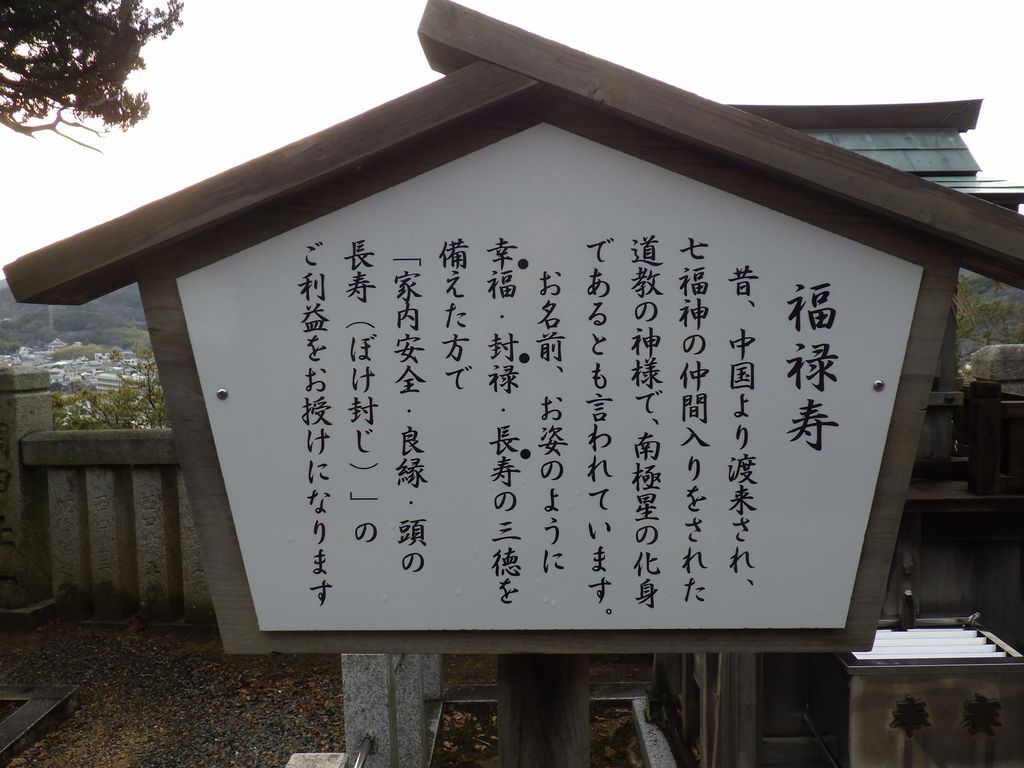 福禄寿
昔、中国より渡来され、
七福神の仲間入りをされた
道教の神様で、南極星の化身
であるとも言われています。
お名前、お姿のように
幸福・封禄・長寿の三徳を
備えた方で
「家内安全・良縁・頭の
長寿（ぼけ封じ）」の
ご利益をお授けになります
奉 奉